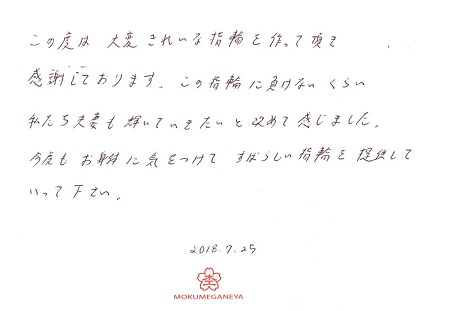 この度は 大変 きれいな指輪を作って頂き
感謝しております。この指輪に負けない くらい
私たち夫妻も 輝いていきたいと 改めて 感じました。
今度も お身体に 気をつけて すばらしい指輪を 提供して
いって 下さい。
2018.7.25
MOKUMEGANEYA